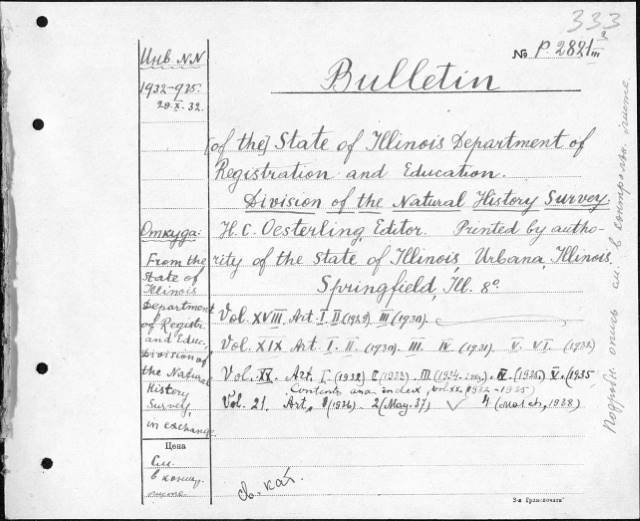 333
№ P. 2821 III 2
Инв NN
1932-925.
20.X.32.
Bulletin
[of the] State of Illinois Department of
Registration and Education.
Division of the Natural History Survey.
Откуда:
H. C. Oesterling, Editor. Printed by autho-
rity of the State of Illinois, Urbana, Illinois,
Springfield, Ill. 8º
From the
State of
Illinois
Department
of Registr.
and Educ.
Division of
the Natural
History
Survey,
in exchange.
Vol. XVIII. Art. I. II (1929). III (1930).
Vol. XIX Art. I. II. (1930). III. IV. (1931). V. VI. (1932)
Vol. XX. Art. I. (1932) II. (1933). III (1934). IV. (1935). V. (1935
Contents and index, 1932-1935
Vol. 21. Art. 1 (1936). 2 (May. 37) ✓ 4 (March, 1938)
Цена
См.
в конце.
листе.
св. кат.
Подробн опись см. в контрольн. листе.